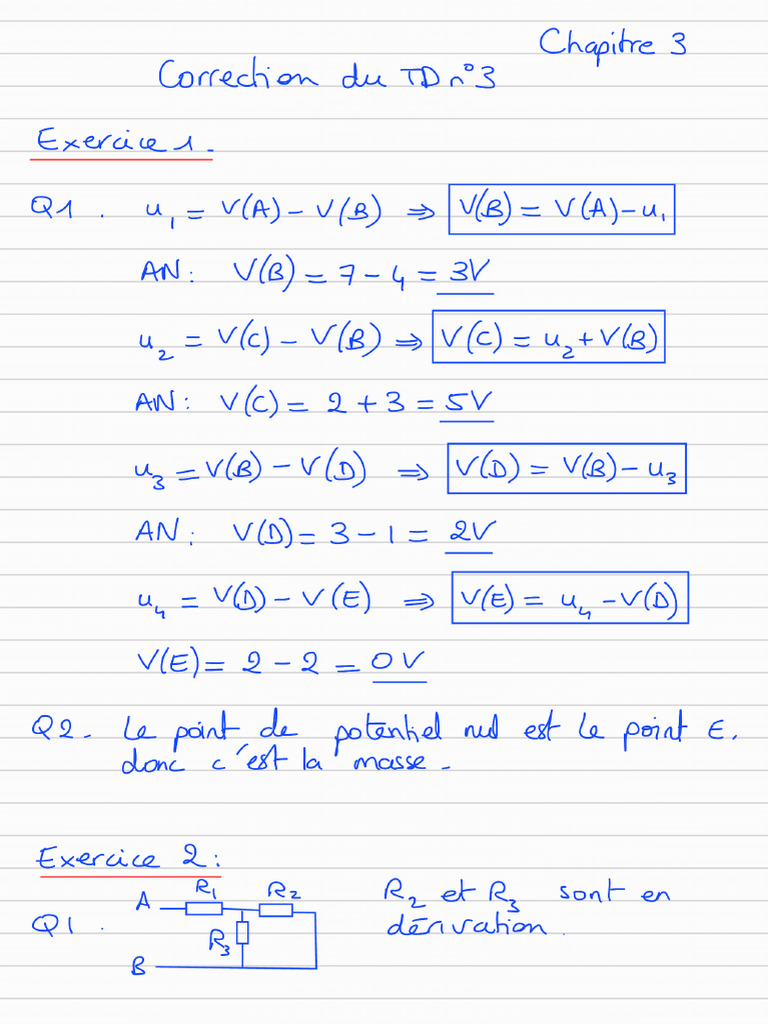 Chapitre 3
Correction du TD n°3
Exercice 1.
Q1. u₁ = V(A) – V(B) ⇒ V(B) = V(A) – u₁
AN: V(B) = 7 – 4 = 3V
u₂ = V(C) – V(B) ⇒ V(C) = u₂ + V(B)
AN: V(C) = 2 + 3 = 5V
u₃ = V(B) – V(D) ⇒ V(D) = V(B) – u₃
AN: V(D) = 3 – 1 = 2V
u₄ = V(D) – V(E) ⇒ V(E) = u₄ – V(D)
V(E) = 2 – 2 = 0V
Q2- Le point de potentiel nul est le point E.
donc c'est la masse.
Exercice 2:
Q1.
A
R₁
R₂
R₃
B
R₂ et R₃ sont en
dérivation.